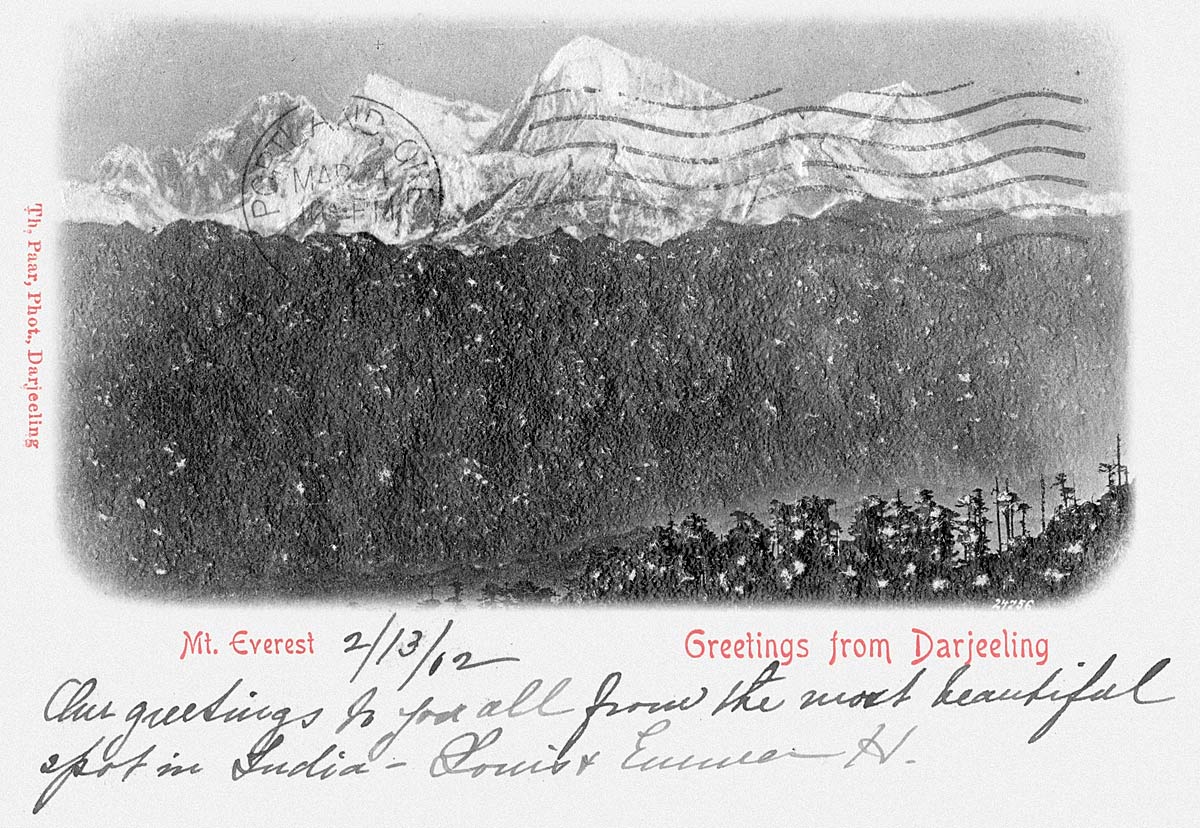 PORTLAND, ORE.
MAR 24
Th. Paar, Phot., Darjeeling
24756
Mt. Everest 2/13/02 Greetings from Darjeeling
Our greetings to you all from the most beautiful
spot in India – Louis & Emma H.